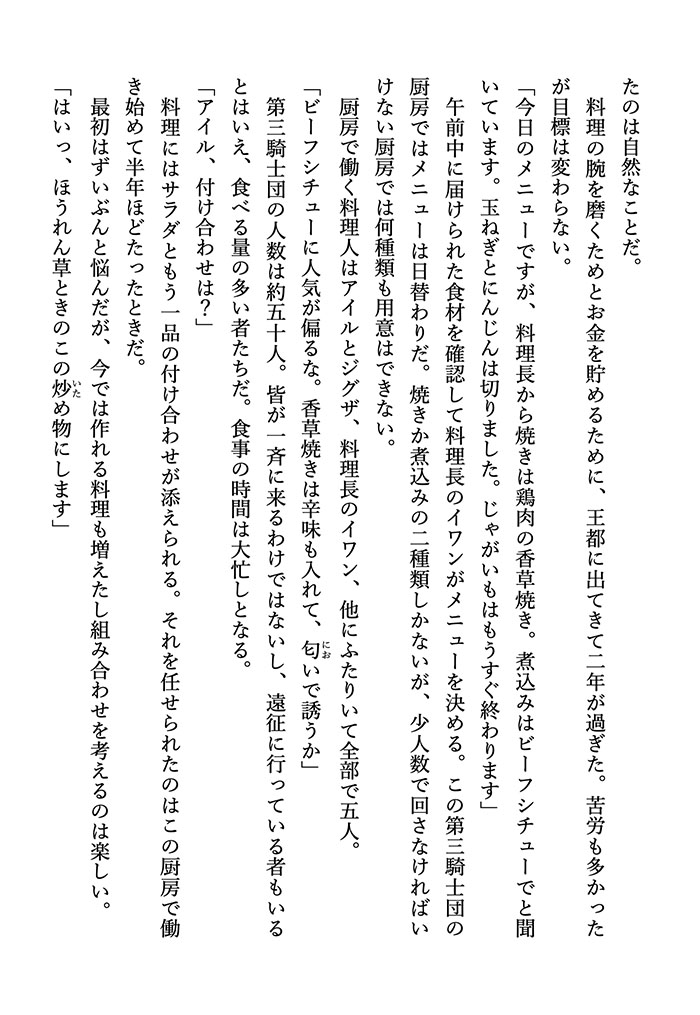 たのは自然なことだ。
　料理の腕を磨くためとお金を貯めるために、王都に出てきて二年が過ぎた。苦労も多かった
が目標は変わらない。
「今日のメニューですが、料理長から焼きは鶏肉の香草焼き。煮込みはビーフシチューでと聞
いています。玉ねぎとにんじんは切りました。じゃがいもはもうすぐ終わります」
　午前中に届けられた食材を確認して料理長のイワンがメニューを決める。この第三騎士団の
厨房ではメニューは日替わりだ。焼きか煮込みの二種類しかないが、少人数で回さなければい
けない厨房では何種類も用意はできない。
　厨房で働く料理人はアイルとジグザ、料理長のイワン、他にふたりいて全部で五人。
「ビーフシチューに人気が偏るな。香草焼きは辛味も入れて、匂いで誘うか」
　第三騎士団の人数は約五十人。皆が一斉に来るわけではないし、遠征に行っている者もいる
とはいえ、食べる量の多い者たちだ。食事の時間は大忙しとなる。
「アイル、付け合わせは？」
　料理にはサラダともう一品の付け合わせが添えられる。それを任せられたのはこの厨房で働
き始めて半年ほどたったときだ。
　最初はずいぶんと悩んだが、今では作れる料理も増えたし組み合わせを考えるのは楽しい。
「はいっ、ほうれん草ときのこの炒め物にします」